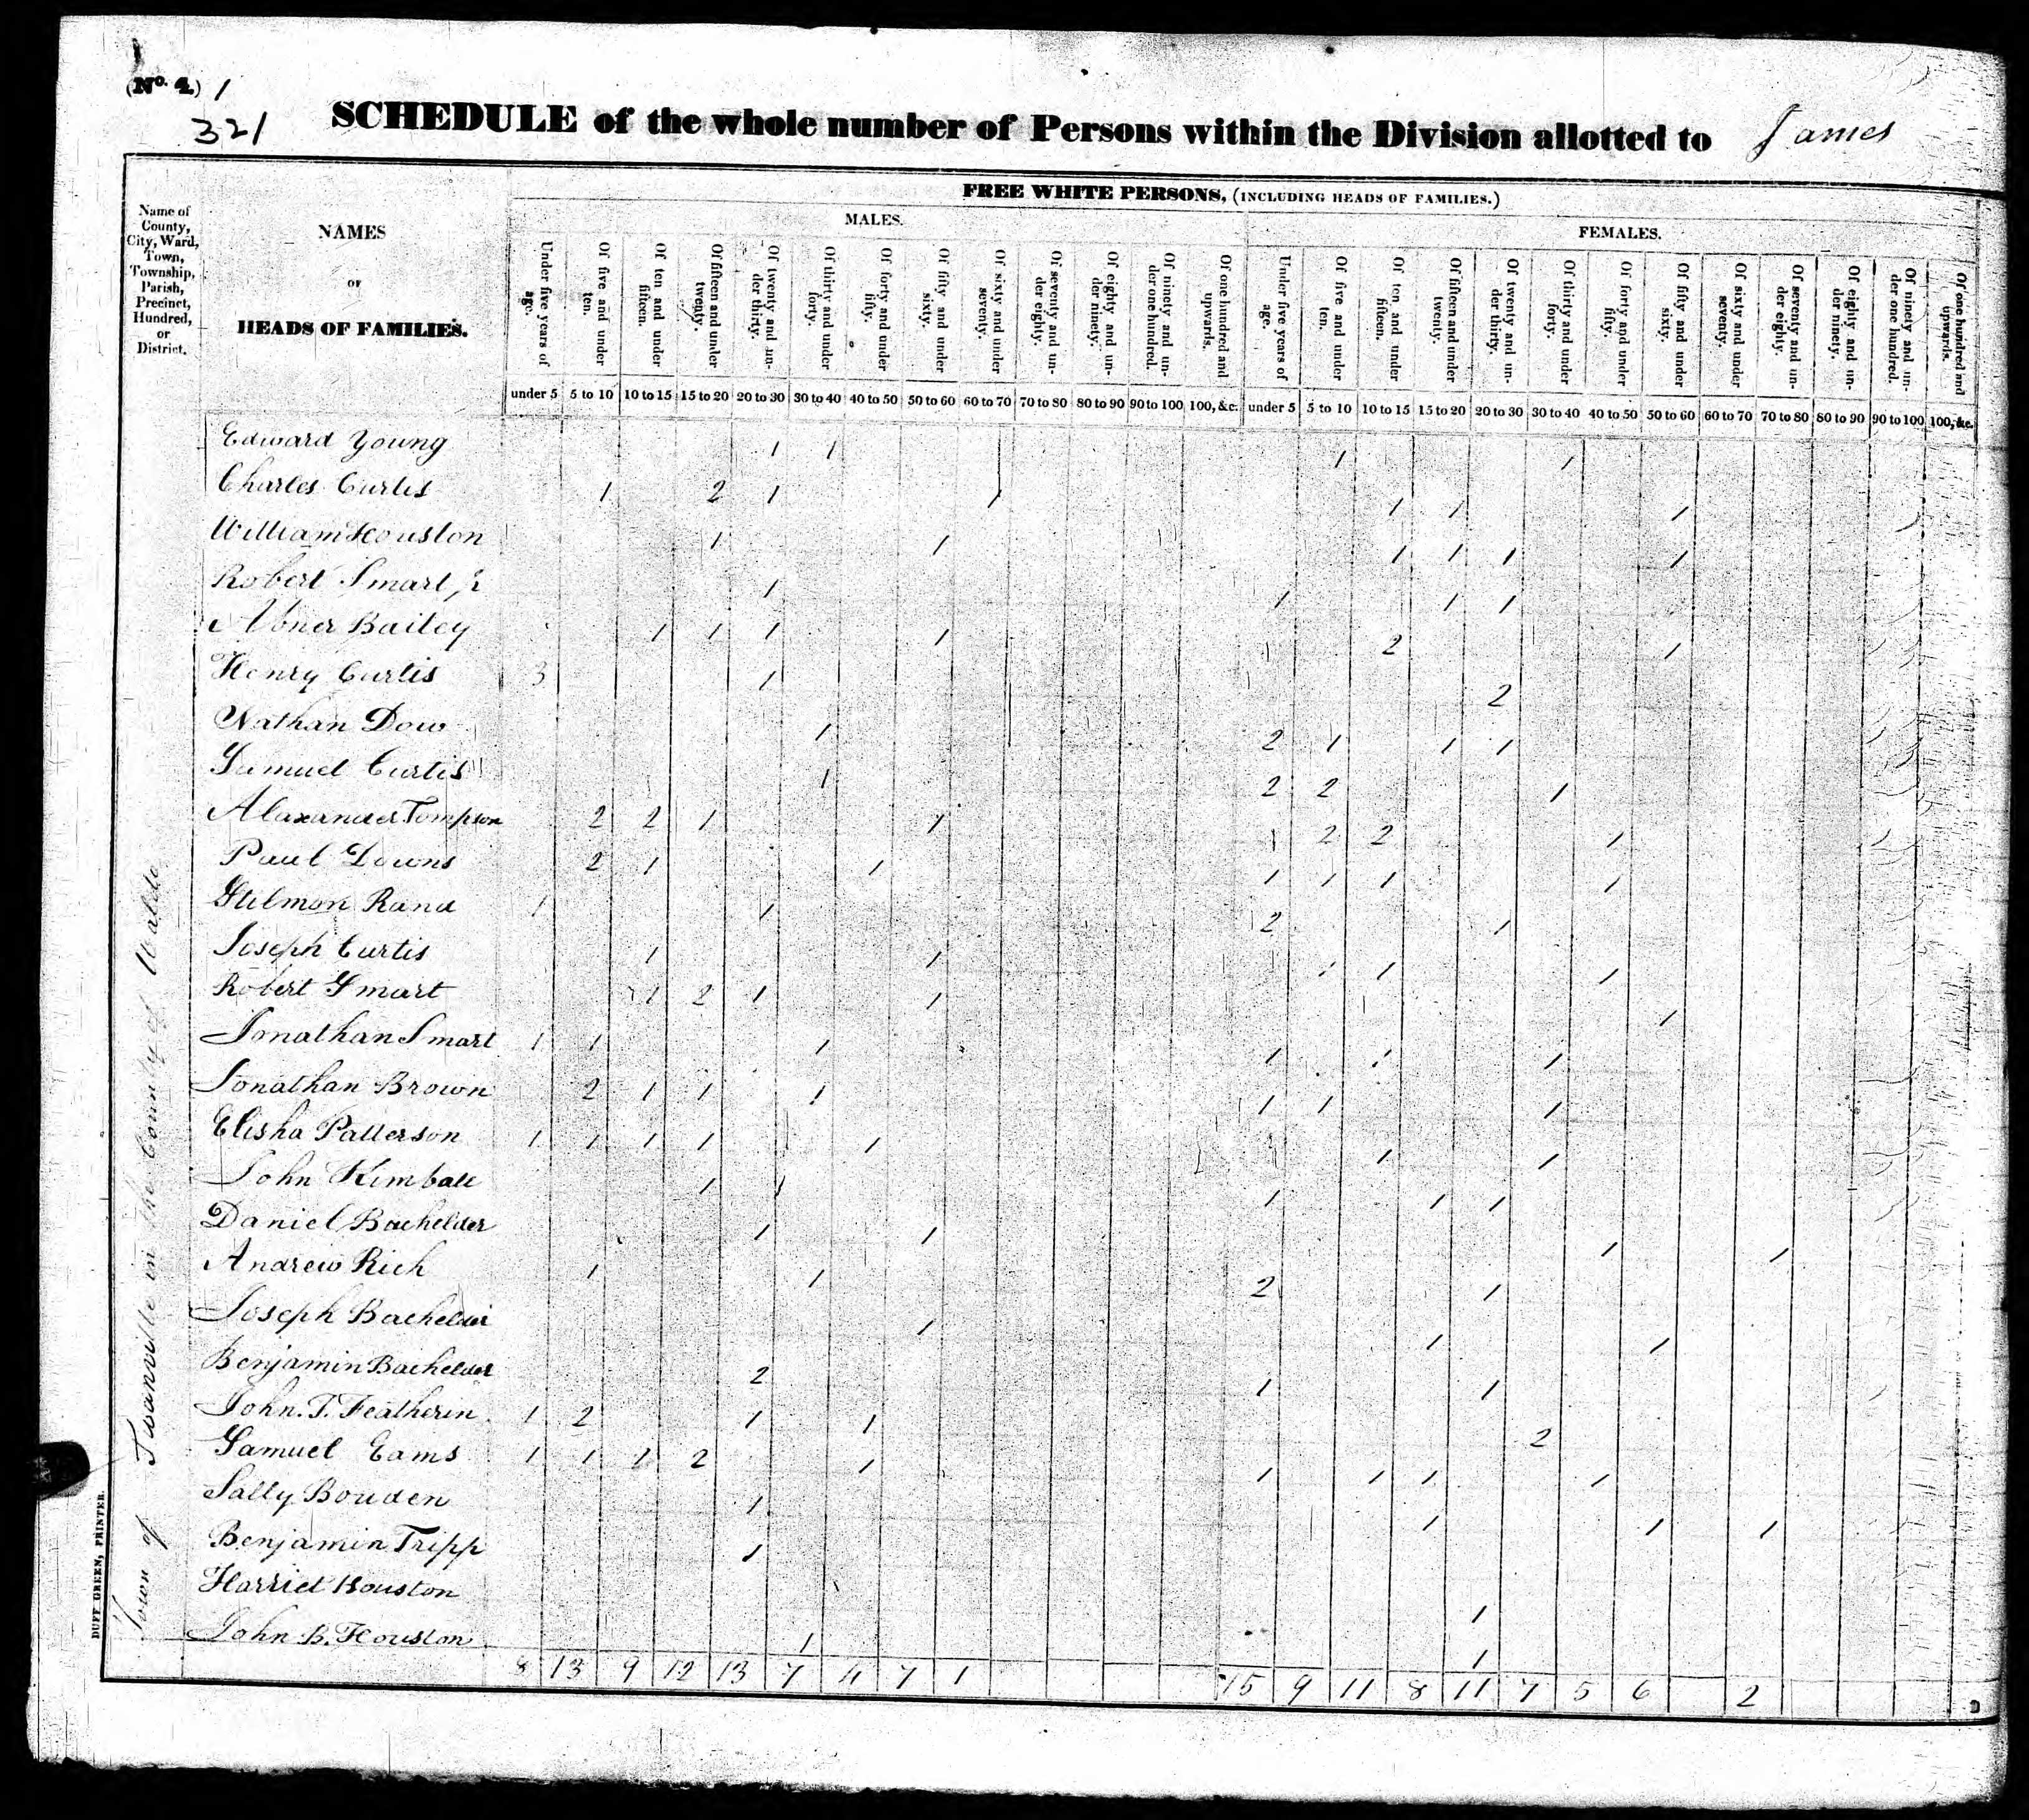 (No. 4.) 1
321
SCHEDULE of the whole number of Persons within the Division allotted to James
FREE WHITE PERSONS, (INCLUDING HEADS OF FAMILIES.)
MALES. FEMALES.
Name of County, City, Ward, Town, Township, Parish, Precinct, Hundred, or District.
NAMES
OF
HEADS OF FAMILIES.
Under five years of age. Of five and under ten. Of ten and under fifteen. Of fifteen and under twenty. Of twenty and under thirty. Of thirty and under forty. Of forty and under fifty. Of fifty and under sixty. Of sixty and under seventy. Of seventy and under eighty. Of eighty and under ninety. Of ninety and under one hundred. Of one hundred and upwards. Under five years of age. Of five and under ten. Of ten and under fifteen. Of fifteen and under twenty. Of twenty and under thirty. Of thirty and under forty. Of forty and under fifty. Of fifty and under sixty. Of sixty and under seventy. Of seventy and under eighty. Of eighty and under ninety. Of ninety and under one hundred. Of one hundred and upwards.
under 5 5 to 10 10 to 15 15 to 20 20 to 30 30 to 40 40 to 50 50 to 60 60 to 70 70 to 80 80 to 90 90 to 100 100, &c. under 5 5 to 10 10 to 15 15 to 20 20 to 30 30 to 40 40 to 50 50 to 60 60 to 70 70 to 80 80 to 90 90 to 100 100, &c.
Edward Young 1 1 1 1
Charles Curtis 1 2 1 1 1 1 1
William Houston 1 1 1 1 1 1
Robert Smart Jr 1 1 1 1
Abner Bailey 1 1 1 1 1 2 1
Henry Curtis 3 1 2
Nathan Dow 1 2 1 1 1
Samuel Curtis 1 2 2 1
Alaxander Tompson 2 2 1 1 1 2 2 1
Paul Downs 2 1 1 1 1 1 1
Stilmon Rand 1 1 2 1
Joseph Curtis 1 1 1 1 1
Robert Smart 1 2 1 1 1
Jonathan Smart 1 1 1 1 1 1
Jonathan Brown 2 1 1 1 1 1 1
Elisha Patterson 1 1 1 1 1 1 1 1
John Kimball 1 1 1 1 1
Daniel Bachelder 1 1 1 1
Andrew Rich 1 1 2 1
Joseph Bachelder 1 1 1
Benjamin Bachelder 2 1 1
John. T. Featherin 1 2 1 1 2
Samuel Eams 1 1 1 2 1 1 1 1 1
Sally Bouden 1 1 1 1
Benjamin Tripp 1
Harriet Houston 1
John B. Houston 1 1
8 13 9 12 13 7 4 7 1 15 9 11 8 11 7 5 6 2
Town of Swanville in the County of Waldo
DUFF GREEN, PRINTER.